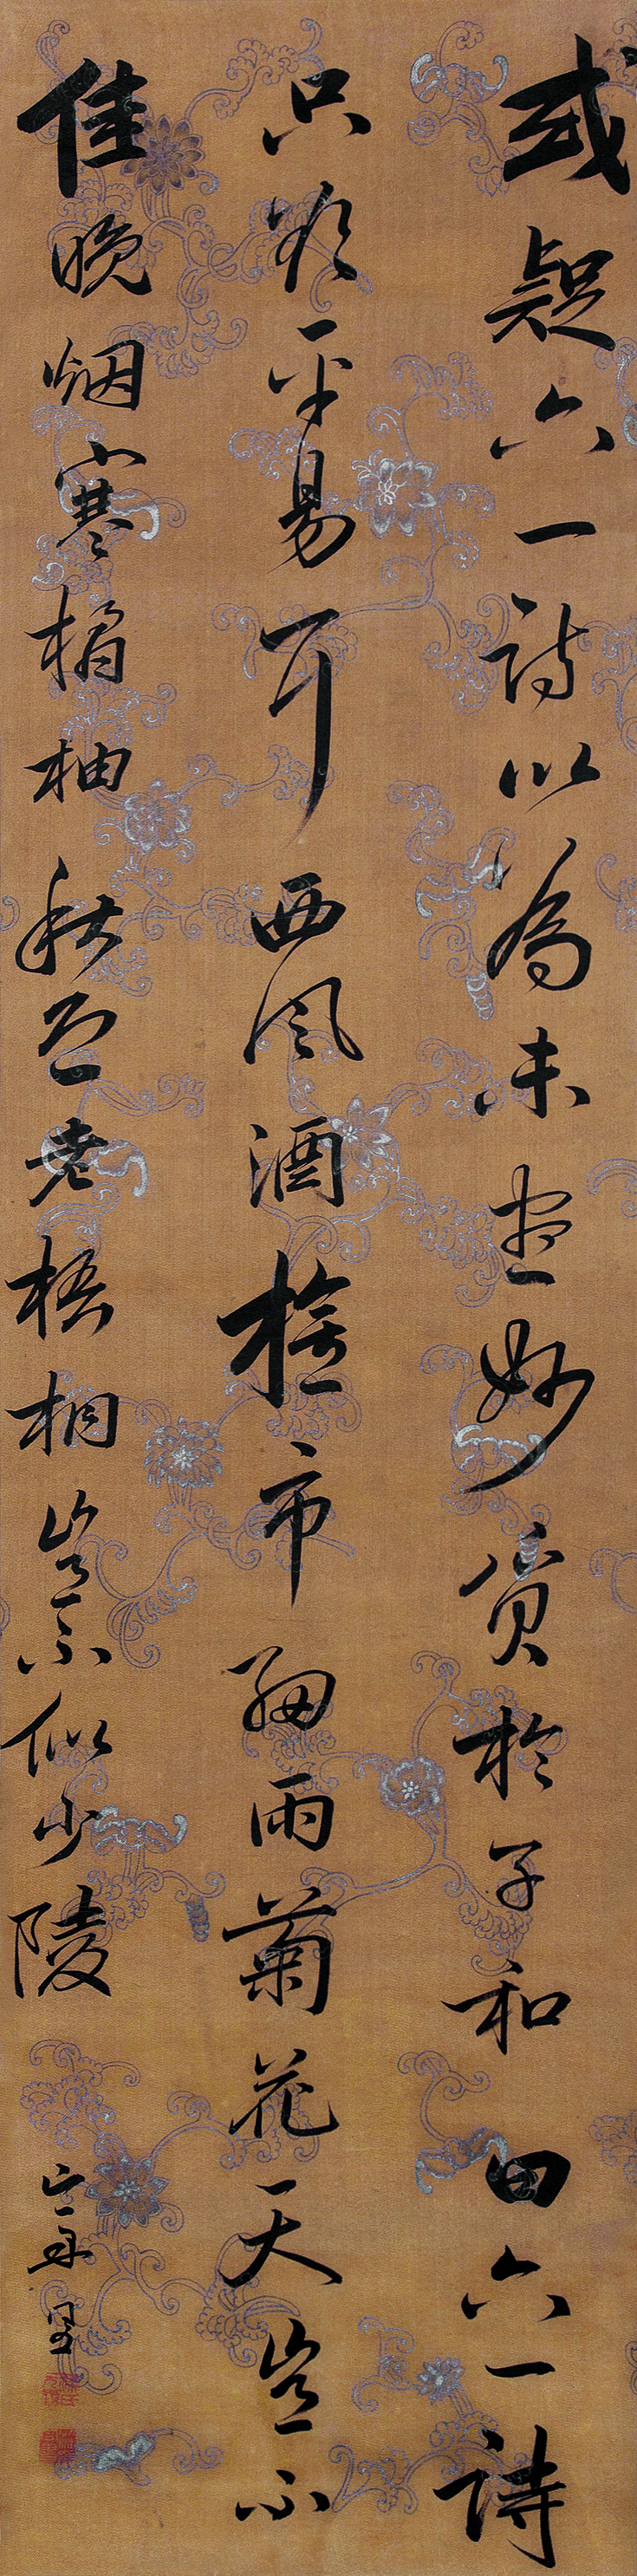 或疑六一詩以爲未盡妙質於子和曰六一詩
只欲平易耳西風酒旗市細雨菊花天豈不
佳晚烟寒橘柚秋色老梧桐豈不似少陵